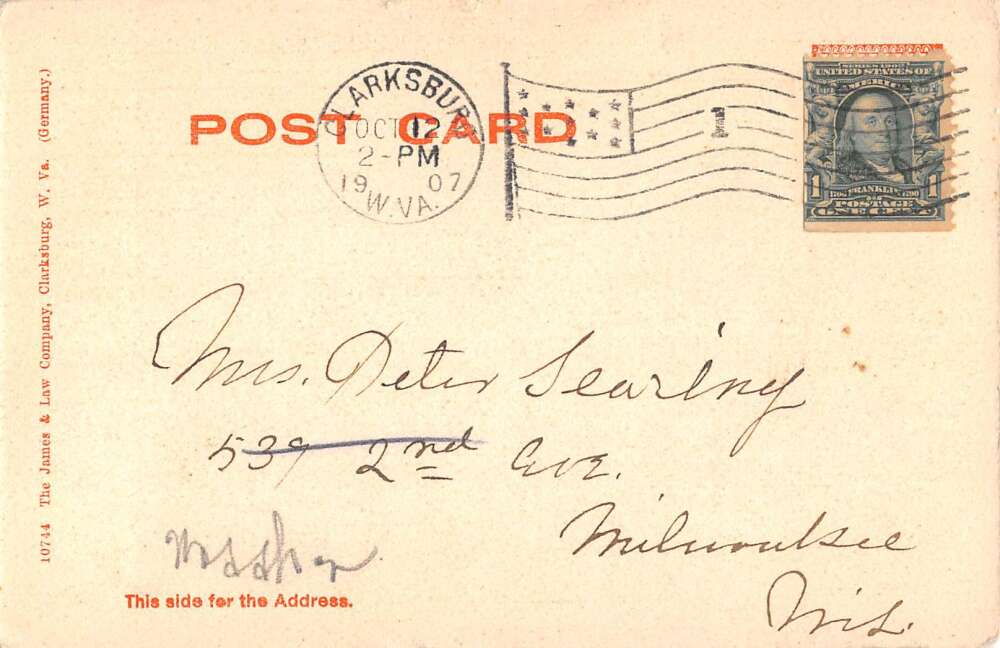 POST CARD
CLARKSBURG
OCT 12
2-PM
1907
W. VA.
1
SERIES 1902
UNITED STATES OF
AMERICA
1 FRANKLIN 1
1706 1790
POSTAGE
ONE CENT
10744 The James & Law Company, Clarksburg, W. Va. (Germany.)
Mrs. Peter Searing
539 2nd Ave.
Milwaukee
Wis.
This side for the Address.